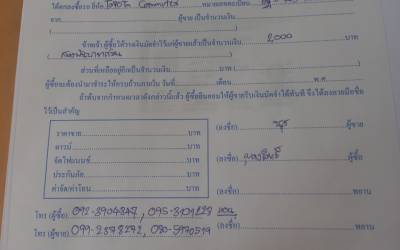 ได้ตกลงซื้อรถ ยี่ห้อ Toyota Commuter หมายเลขทะเบียน
จาก ผู้ขาย เป็นจำนวนเงิน
ข้าพเจ้า ผู้ซื้อได้วางเงินมัดจำไว้แก่ผู้ขายแล้วเป็นจำนวนเงิน 2,000 บาท
(สองพันบาทถ้วน)
ส่วนที่เหลืออยู่อีกเป็นจำนวนเงิน บาท
ผู้ซื้อจะต้องนำมาชำระให้ครบถ้วนภายใน วันที่ เดือน พ.ศ.
ถ้าพ้นจากกำหนดเวลาดังกล่าวนี้แล้ว ผู้ซื้อยินยอมให้ผู้ขายริบเงินมัดจำได้ทันที จึงได้ลงลายมือชื่อ
ไว้เป็นสำคัญ
ราคาขาย บาท
ดาวน์ บาท
จัดไฟแนนซ์ บาท
ประกันภัย บาท
ค่าจัด/ค่าโอน บาท
(ลงชื่อ) ผู้ขาย
(ลงชื่อ) ผู้ซื้อ
(ลงชื่อ) พยาน
(ลงชื่อ) พยาน
โทร (ผู้ซื้อ) 092-3904847, 095-3101228
โทร (ผู้ขาย) 099-2878272, 080-5970579